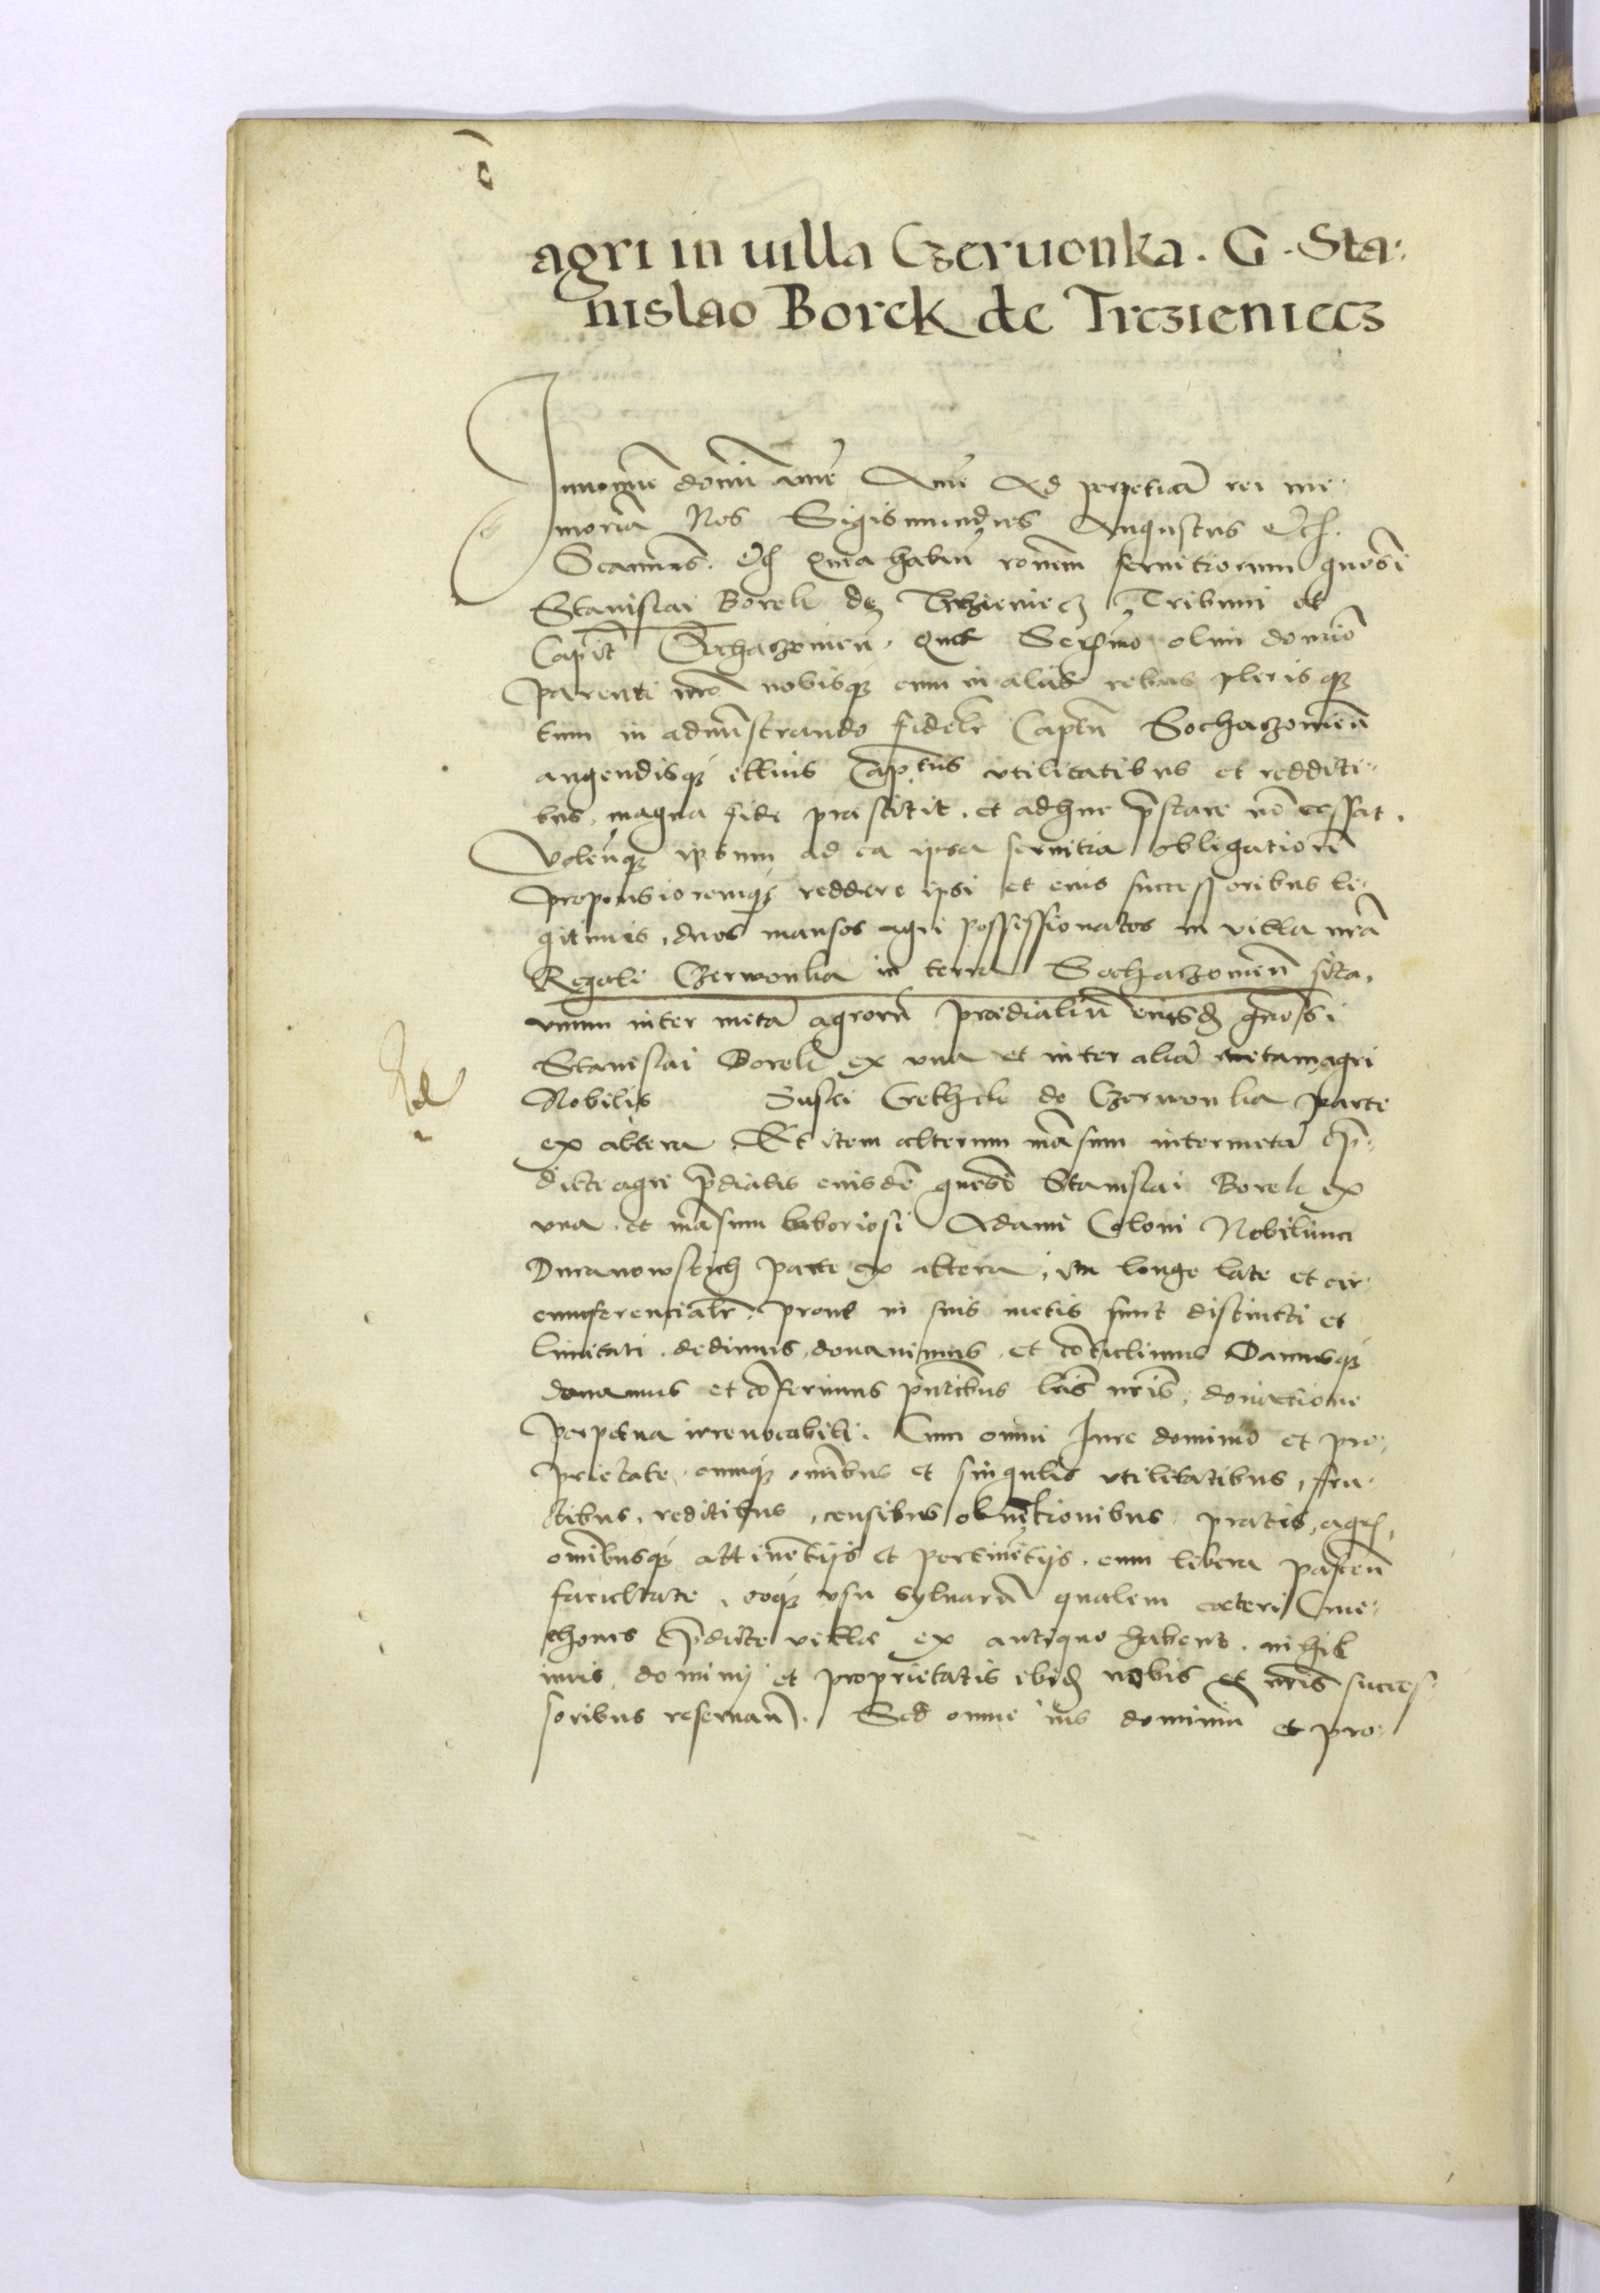 agri in uilla Czeruonka. G. Sta-
nislao Borek de Trczieniecz
In no̅i̅e̅ do̅m̅i̅ ame̅ Ame̅ Ad perpetua̅ rei me-
moria̅ Nos Sigismundus Augustus Etc.
Quia habita ronem seruitiorum
Stanislai Borek de Trczieniecz Tribuni et
Capit̅ Sochaczouien̅. que Ser̅mo olim domi̅o
parenti n̅ro nobisq; cum in aliis rebus plerisq;
tum in administrando fideli̅r Capt̅u Sochaczouien̅
augendisq; illius Cap̅tus utilitatibus et redditi-
bus magna fide præstitit. et adhuc p̅stare no̅ cessat.
Volen̅q; ipsum ad ea ipsa seruitia obligatiore̅
propensioremq; reddere ipsi et eius successoribus le-
gitimis, duos mansos agri possessionatos in villa n̅ra
Regali Czerwonka in terra Sochaczouien̅ sita.
vnum inter meta̅ agroru̅ prædialiu̅ eiusd̅ g̅nosi
Stanislai Borek ex vna et inter alia̅ metam agri
Nobilis Gethek de Czerwonka parte
ex altera. Et item alterum ma̅sum inter meta̅
dicti agri p̅dialis eiusde̅ g̅nosi Stanislai Borek ex
vna. et ma̅sum laboriosi Adami Coloni Nobilium
Duranowskich parte ex altera, longe late et cir-
cumferencialr̅. prout in suis metis sunt distincti et
limitati. dedimus, donauimus, et co̅tulimus Damusq;
donamus et co̅ferimus p̅ntibus l̅ris n̅ris, donatione
perpetua irreuocabili. Cum omni Jure dominio et pro-
prietate, cumq; o̅mibus et singulis vtilitatibus, fru-
ctibus, reditibus, censibus obue̅tionibus pratis, agris,
o̅mibusq; attine̅tiis et pertine̅tiis. cum libera pascen̅
facultate, eoq; vsu syluaru̅ qualem cæteri Cme-
thones villæ ex antiquo habent. nihil
iuris, dominij et proprietatis ibid̅ nobis et n̅ris succes-
soribus reseruan̅. Sed omne ius dominiu̅ et pro-